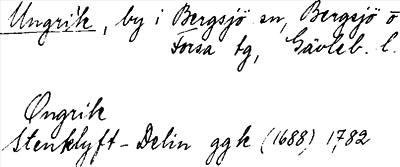 Ungrik, by i Bergsjö sn, Bergsjö o
Forsa tg, Gävleb. l.
Ongrik
Stenklyft-Delin ggk (1688) 1782